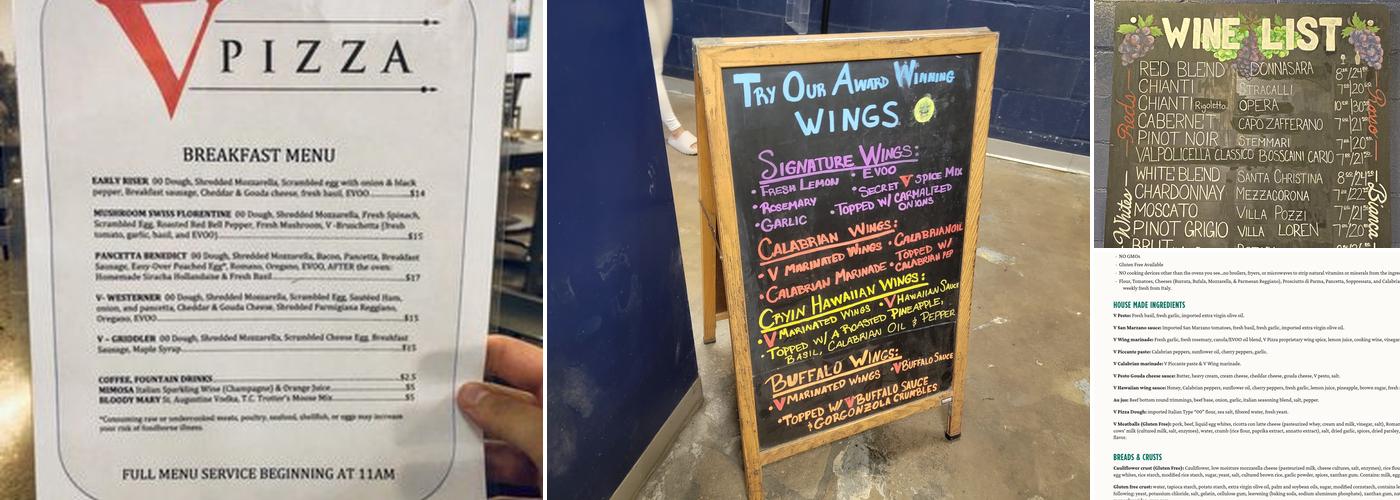 V PIZZA
BREAKFAST MENU
EARLY RISER 00 Dough, Shredded Mozzarella, Scrambled egg with onion & black
pepper, Breakfast sausage, Cheddar & Gouda cheese, fresh basil, EVOO $14
MUSHROOM SWISS FLORENTINE 00 Dough, Shredded Mozzarella, Fresh Spinach,
Scrambled Egg, Roasted Red Bell Pepper, Fresh Mushroom, V-Bruschetta (fresh
tomato, garlic, basil, and EVOO) $15
PANCETTA BENEDICT 00 Dough, Shredded Mozzarella, Bacon, Pancetta, Breakfast
Sausage, Easy-Over Poached Egg*, Romano, Oregano, EVOO, AFTER the oven:
Homemade Siracha Hollandaise & Fresh Basil $17
V- WESTERNER 00 Dough, Shredded Mozzarella, Scrambled Egg, Sautéed Ham,
onion, and pancetta, Cheddar & Gouda Cheese, Shredded Parmigiana Reggiano,
Oregano, EVOO $15
V – GRIDDLER 00 Dough, Shredded Mozzarella, Scrambled Cheesy Egg, Breakfast
Sausage, Maple Syrup $15
COFFEE, FOUNTAIN DRINKS $2.5
MIMOSA Italian Sparkling Wine (Champagne) & Orange Juice $5
BLOODY MARY St. Augustine Vodka, T.C. Trotter's Mouse Mix $5
*Consuming raw or undercooked meats, poultry, seafood, shellfish, or eggs may increase
your risk of foodborne illness.
FULL MENU SERVICE BEGINNING AT 11AM
TRY OUR AWARD WINNING
WINGS
SIGNATURE WINGS:
• FRESH LEMON • EVOO
• ROSEMARY • SECRET V SPICE MIX
• GARLIC • TOPPED W/ CARMALIZED
ONIONS
CALABRIAN WINGS:
• V MARINATED WINGS • CALABRIAN OIL
• CALABRIAN MARINADE • TOPPED W/
CALABRIAN PEP
CRYIN HAWAIIAN WINGS:
• V MARINATED WINGS • V HAWAIIAN SAUCE
• TOPPED W/ A ROASTED PINEAPPLE,
BASIL, CALABRIAN OIL & PEPPER
BUFFALO WINGS:
• V MARINATED WINGS • V BUFFALO SAUCE
• TOPPED W/ V BUFFALO SAUCE
& GORGONZOLA CRUMBLES
WINE LIST
Reds
Rosso
RED BLEND DONNASARA 8/24
CHIANTI STRACALLI 7/20
CHIANTI Rigoletto OPERA 10/30
CABERNET CAPO ZAFFERANO 7/21
PINOT NOIR STEMMARI 7/20
VALPOLICELLA CLASSICO BOSSCAINI CARIO 7/21
Whites
Bianco
WHITE BLEND SANTA CHRISTINA 8/25
CHARDONNAY MEZZACORONA 7/22
MOSCATO VILLA POZZI 7/21
PINOT GRIGIO VILLA LOREN 7/20
BRUT
- NO GMOs
- Gluten Free Available
- NO cooking devices other than the ovens you see...no broilers, fryers, or microwaves to strip natural vitamins or minerals from the
- Flour, Tomatoes, Cheeses (Burrata, Bufala, Mozzarella, & Parmesan Reggiano), Prosciutto di Parma, Pancetta, Soppressata, and
weekly fresh from Italy.
HOUSE MADE INGREDIENTS
V Pesto: Fresh basil, fresh garlic, imported extra virgin olive oil.
V San Marzano sauce: Imported San Marzano tomatoes, fresh basil, fresh garlic, imported extra virgin olive oil.
V Wing marinade: Fresh garlic, fresh rosemary, canola/EVOO oil blend, V Pizza proprietary wing spice, lemon juice, cooking wine,
V Piccante paste: Calabrian peppers, sunflower oil, cherry peppers, garlic.
V Calabrian marinade: V Piccante paste & V Wing marinade.
V Pesto Gouda cheese sauce: Butter, heavy cream, cream cheese, cheddar cheese, gouda cheese, V pesto, salt.
V Hawaiian wing sauce: Honey, Calabrian peppers, sunflower oil, cherry peppers, fresh garlic, lemon juice, pineapple, brown sugar,
Au jus: Beef bottom round trimmings, beef base, onion, garlic, italian seasoning blend, salt, pepper.
V Pizza Dough: imported Italian Type "00" flour, sea salt, filtered water, fresh yeast.
V Meatballs (Gluten Free): pork, beef, liquid egg whites, ricotta con latte cheese (pasteurized whey, cream and milk, vinegar, salt),
cows' milk (cultured milk, salt, enzymes), water, crumb (rice flour, paprika extract, annatto extract), salt, dried garlic, spices, dried parsley,
flavor.
BREADS & CRUSTS
Cauliflower crust (Gluten Free): Cauliflower, low moisture mozzarella cheese (pasteurized milk, cheese cultures, salt, enzymes),
egg whites, rice starch, modified rice starch, sugar, yeast, salt, cultured brown rice, garlic powder, spices, xanthan gum. Contains: milk,
Gluten free crust: water, tapioca starch, potato starch, extra virgin olive oil, palm and soybean oils, sugar, modified cornstarch,
following: yeast, potassium chloride, salt, gelatin, cellulose gum, leavening (baking soda, sodium aluminum phosphate), xanthan